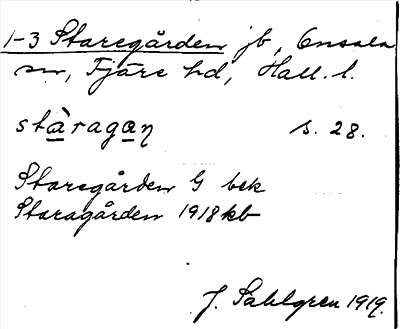 1-3 Staregården jb, Onsala
sn, Fjäre hd, Hall. l.
stàragaŋ s. 28.
Staregården G bek
Staragården 1918 kb
J. Sahlgren 1919.